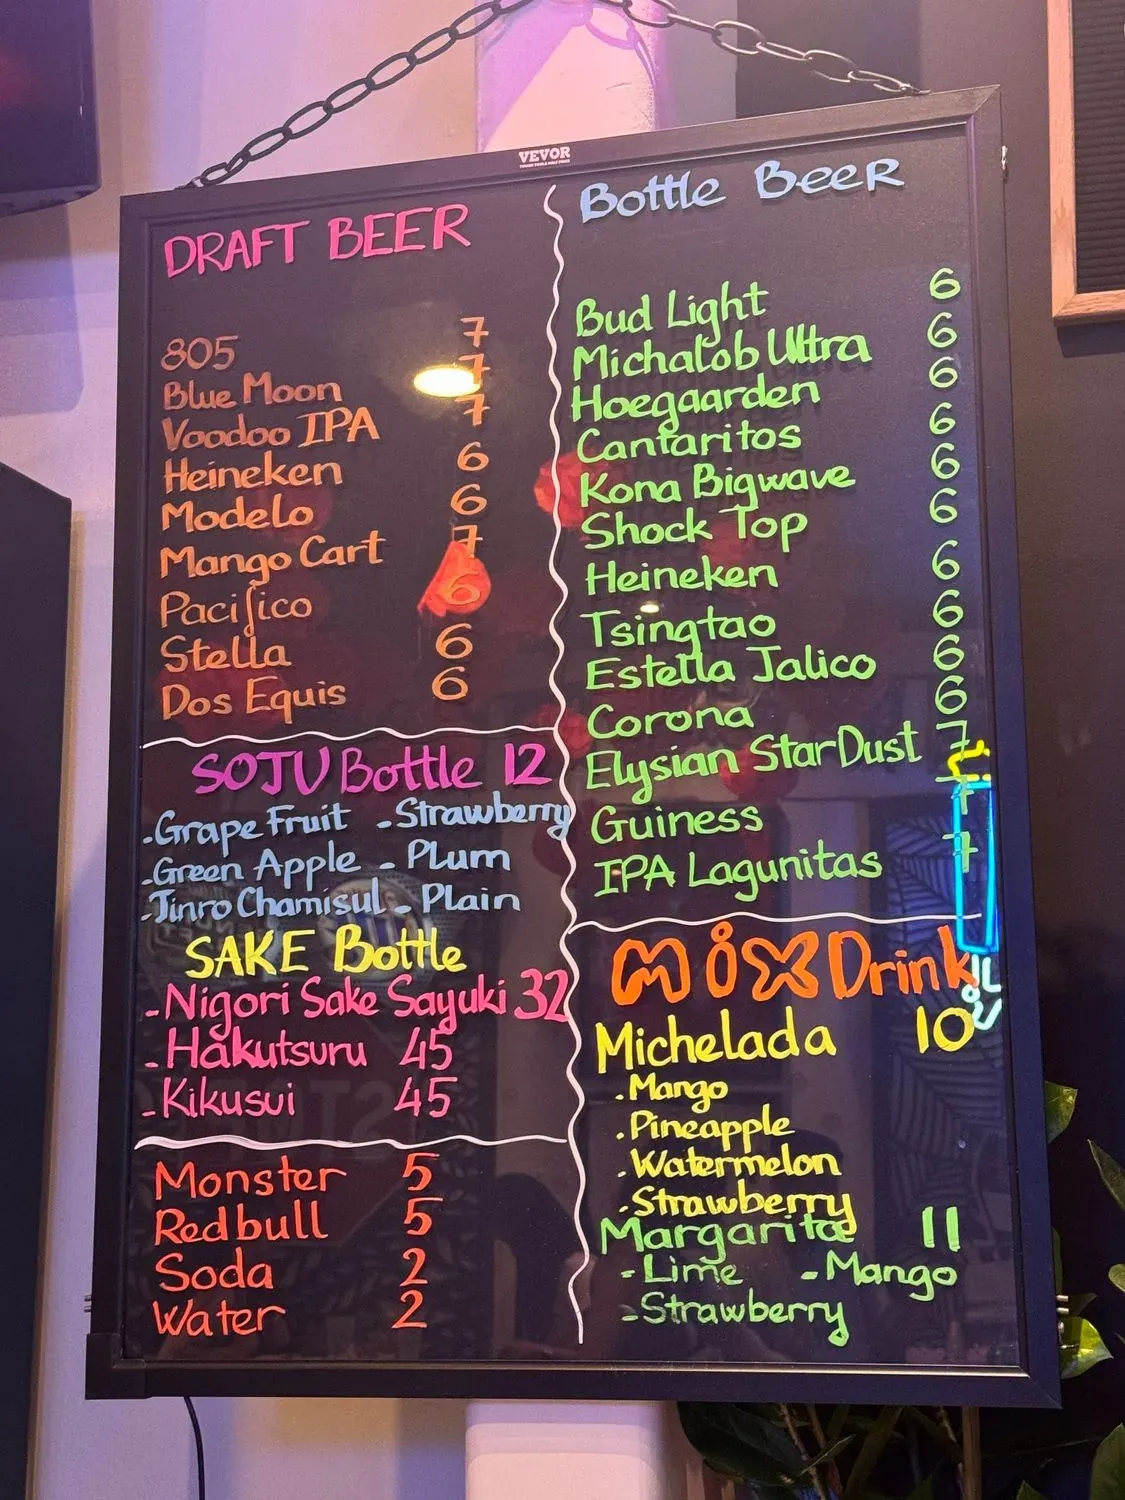 VEVOR
DRAFT BEER
805 7
Blue Moon 7
Voodoo IPA 7
Heineken 6
Modelo 6
Mango Cart 7
Pacifico 6
Stella 6
Dos Equis 6
SOJU Bottle 12
-Grape Fruit -Strawberry
-Green Apple - Plum
-Jinro Chamisul - Plain
SAKE Bottle
-Nigori Sake Sayuki 32
-Hakutsuru 45
-Kikusui 45
Monster 5
Redbull 5
Soda 2
Water 2
Bottle BEER
Bud Light 6
Michalob Ultra 6
Hoegaarden 6
Cantaritos 6
Kona Bigwave 6
Shock Top 6
Heineken 6
Tsingtao 6
Estella Jalico 6
Corona 6
Elysian StarDust 7
Guiness 7
IPA Lagunitas 7
MiX Drink
Michelada 10
.Mango
.Pineapple
.Watermelon
.Strawberry
Margarita 11
-Lime -Mango
-Strawberry